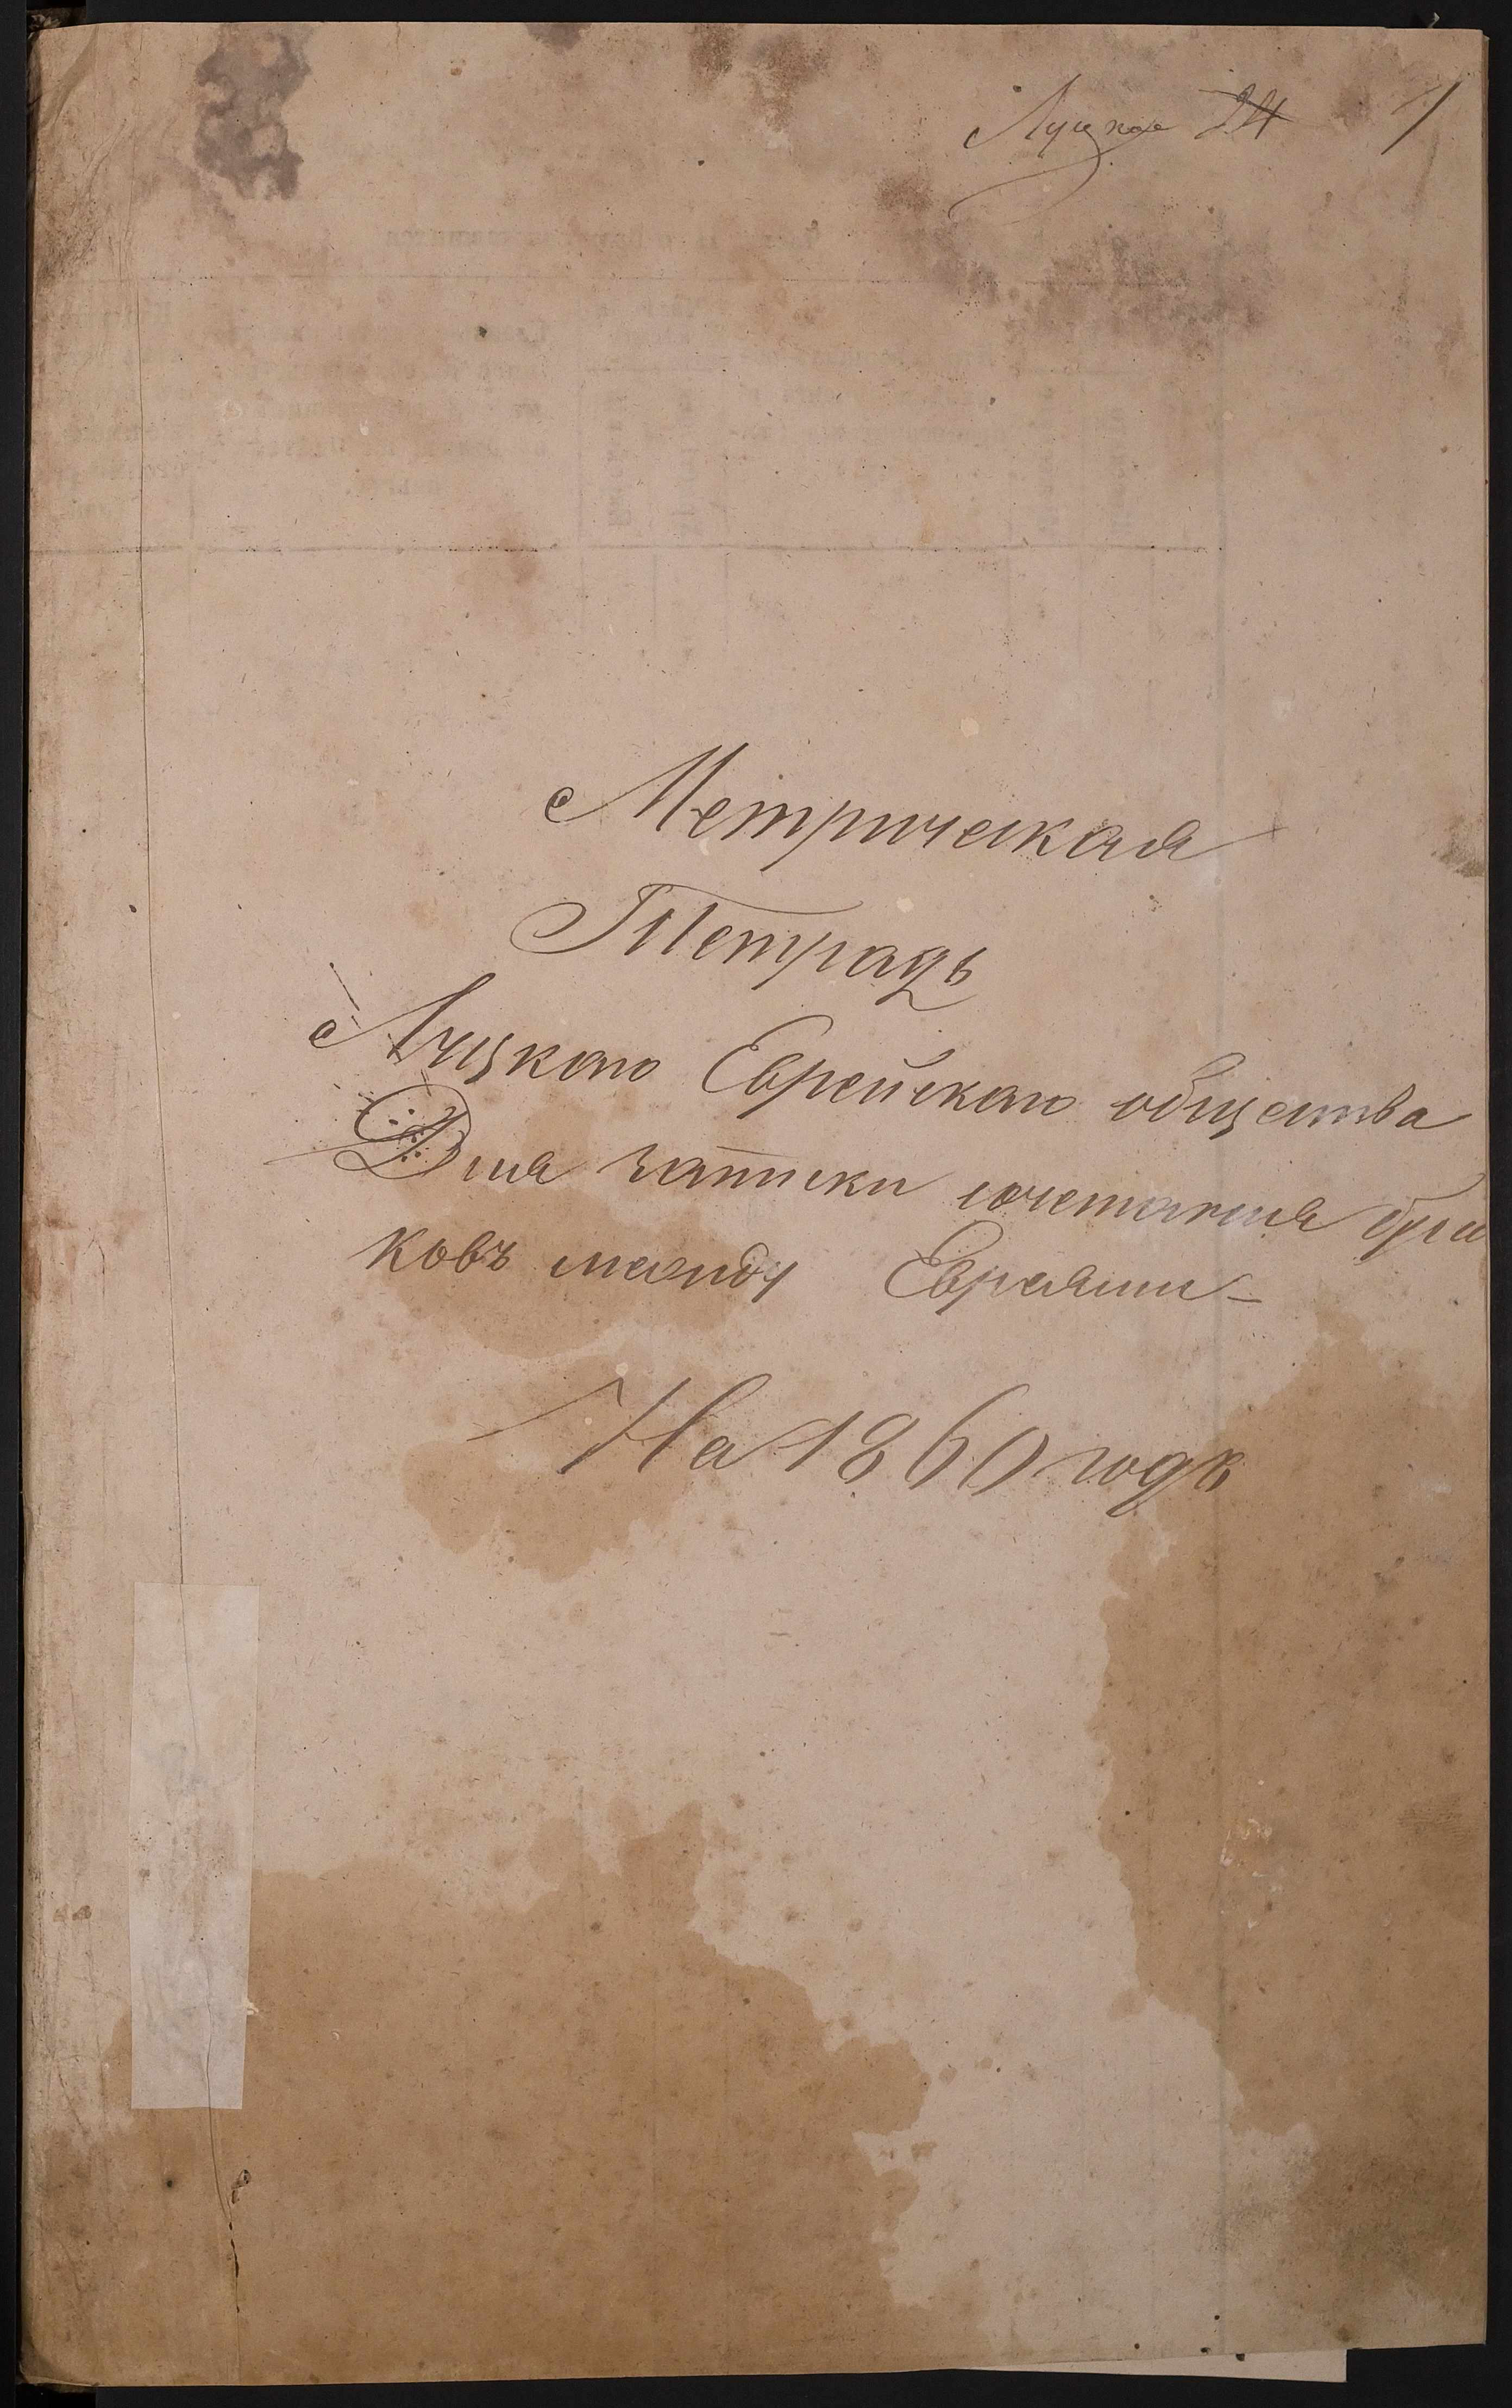 Луцкое 24 1
Метрическая
Тетрадь
Луцкаго Еврейскаго общества
Для записки сочетания бра
ковъ между Евреями
На 1860 годъ